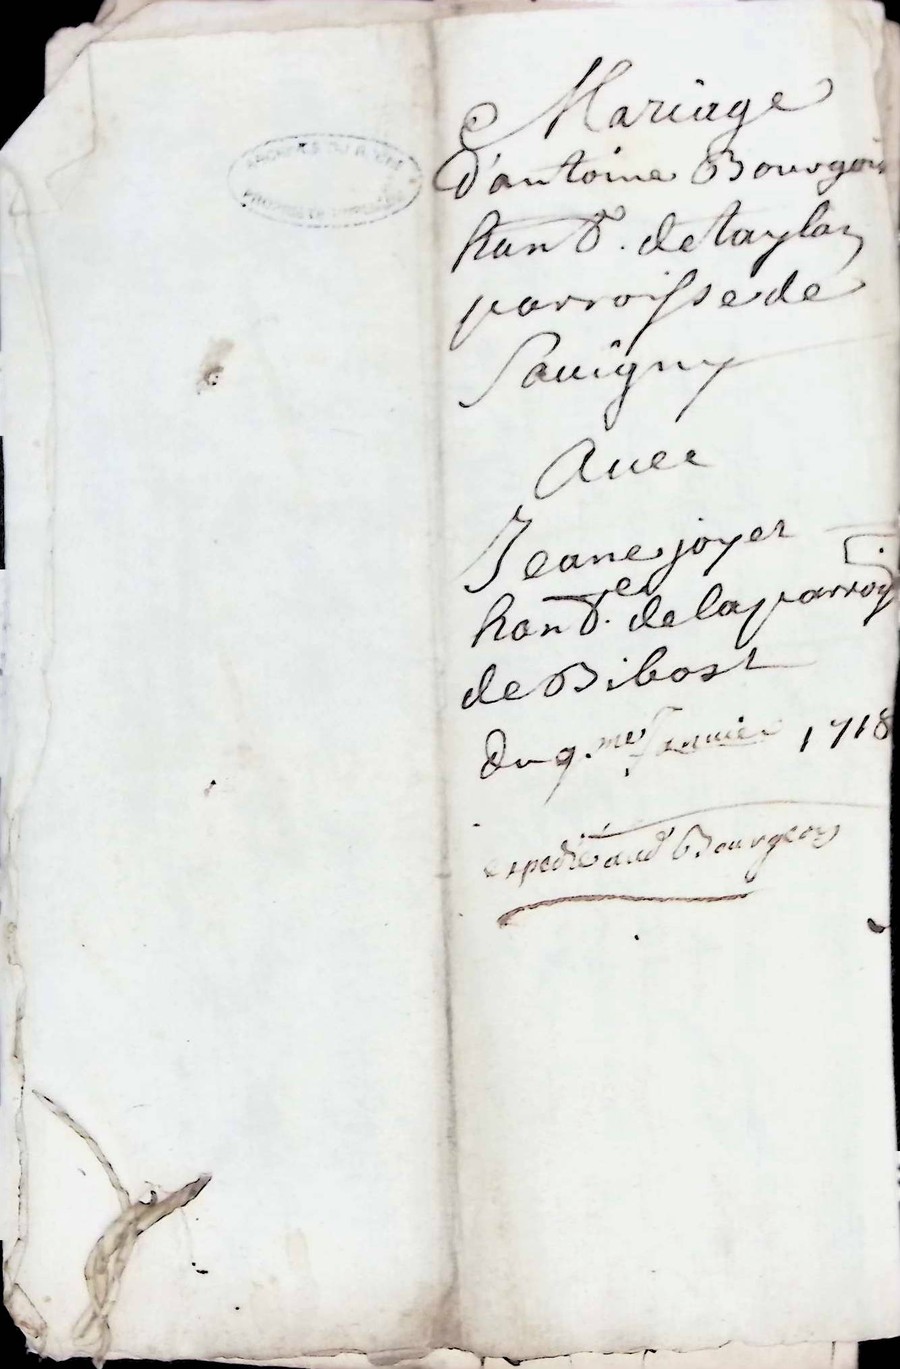 ARCHIVES DU RHÔNE
Mariage
d'antoine Bourgeois
hant. de taylan
parroisse de
Sauigny
Auec
Jeane joyet
hante. de la parroi
de Bibost
Du 9.me Januier 1718
expedié aud Bourgeois